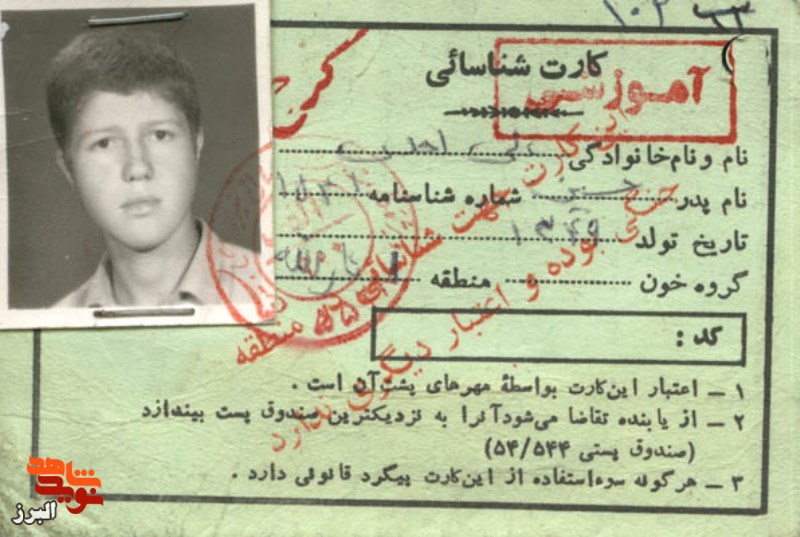 کارت شناسائی
آموزشی
نام و نام خانوادگی علی احمدی
نام پدر حسین شماره شناسنامه
تاریخ تولد ۱۳۴۹
گروه خون منطقه ۱ ثارالله
کد :
۱ ـ اعتبار این‌کارت بواسطهٔ مهرهای پشت‌آن است .
۲ ـ از یابنده تقاضا می‌شود آنرا به نزدیکترین صندوق پست بیندازد
(صندوق پستی ۵۴/۵۴۴)
۳ ـ هرگونه سوءاستفاده از این‌کارت پیگرد قانونی دارد .
این کارت جهت شناسائی
بوده و اعتبار دیگری ندارد
منطقه
شاهد
نوید
البرز